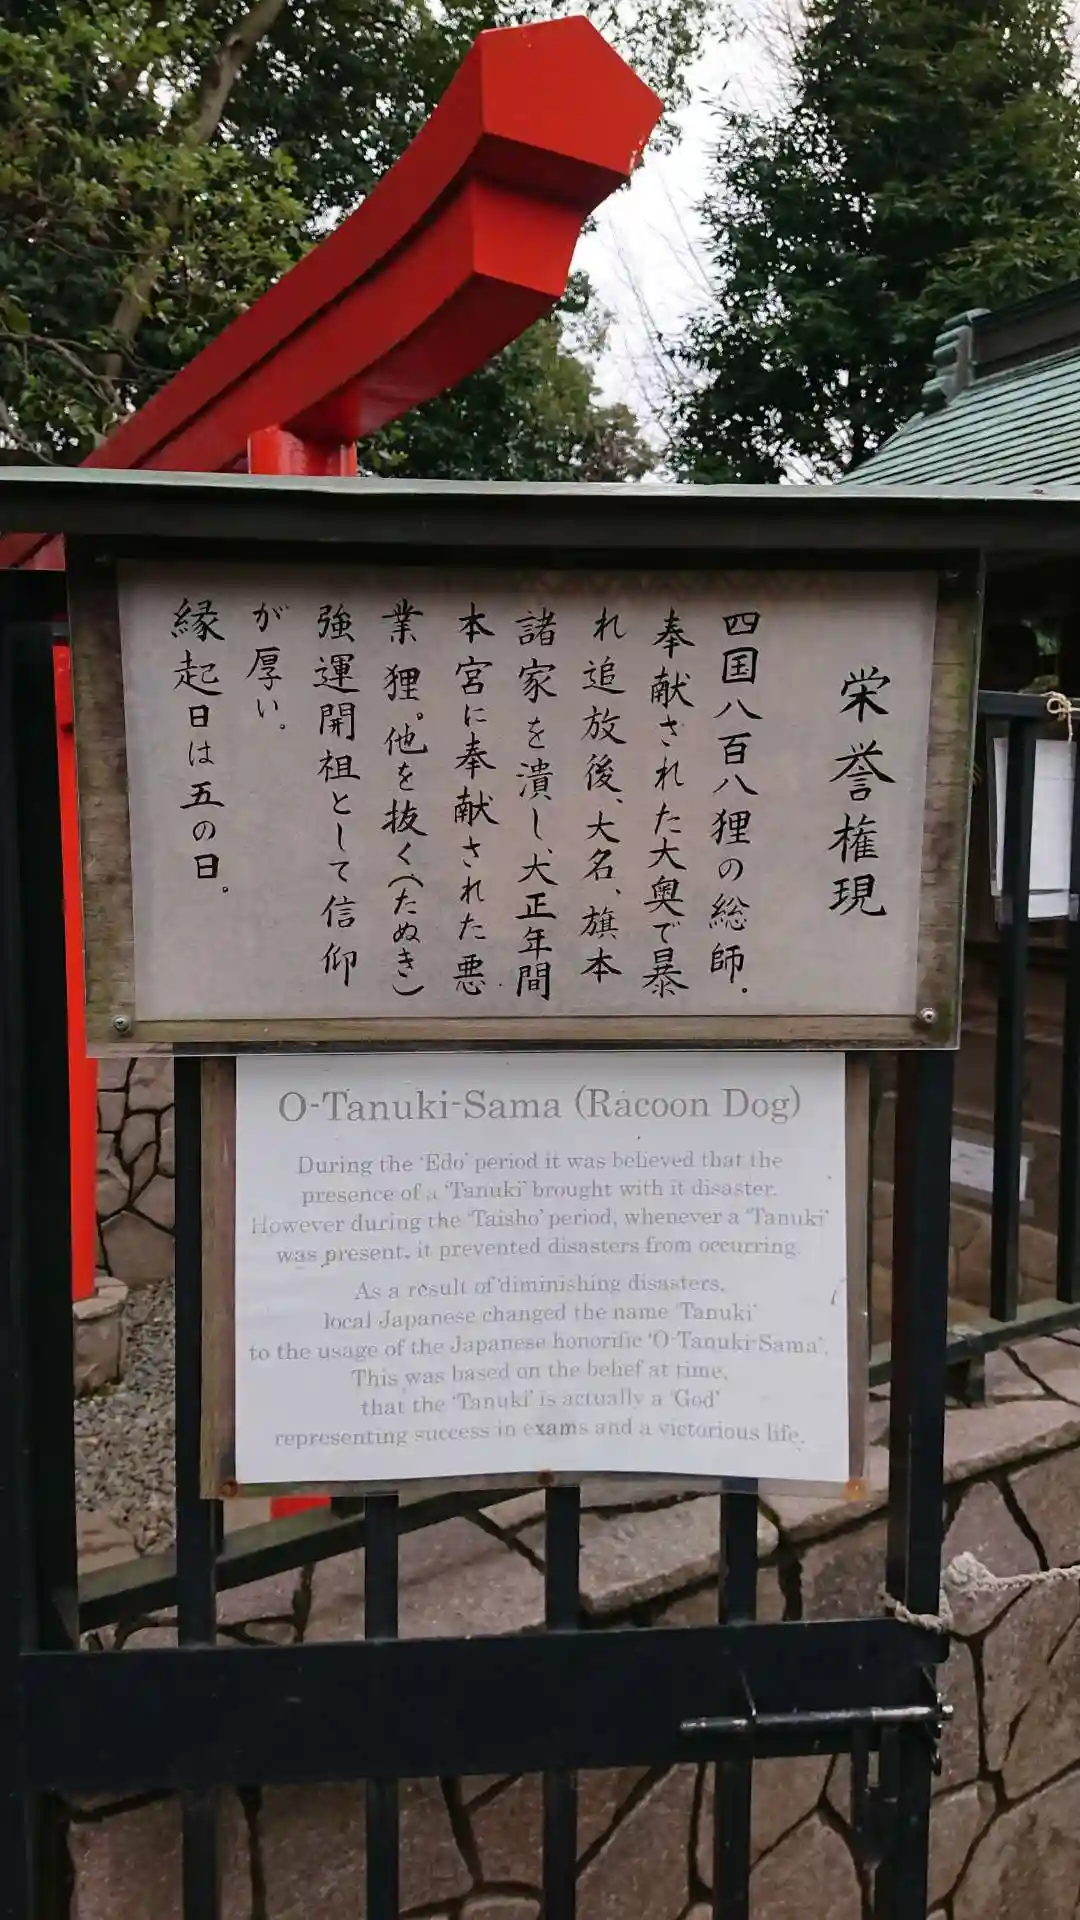 栄誉権現
四国八百八狸の総師。
奉献された大奥で暴
れ追放後、大名、旗本
諸家を潰し、大正年間
本宮に奉献された悪
業狸。他を抜く(たぬき)
強運開祖として信仰
が厚い。
縁起日は五の日。
O-Tanuki-Sama (Racoon Dog)
During the ‘Edo’ period it was believed that the
presence of a ‘Tanuki’ brought with it disaster.
However during the ‘Taisho’ period, whenever a ‘Tanuki’
was present, it prevented disasters from occurring.
As a result of diminishing disasters,
local Japanese changed the name ‘Tanuki’
to the usage of the Japanese honorific ‘O-Tanuki-Sama’.
This was based on the belief at time,
that the ‘Tanuki’ is actually a ‘God’
representing success in exams and a victorious life.